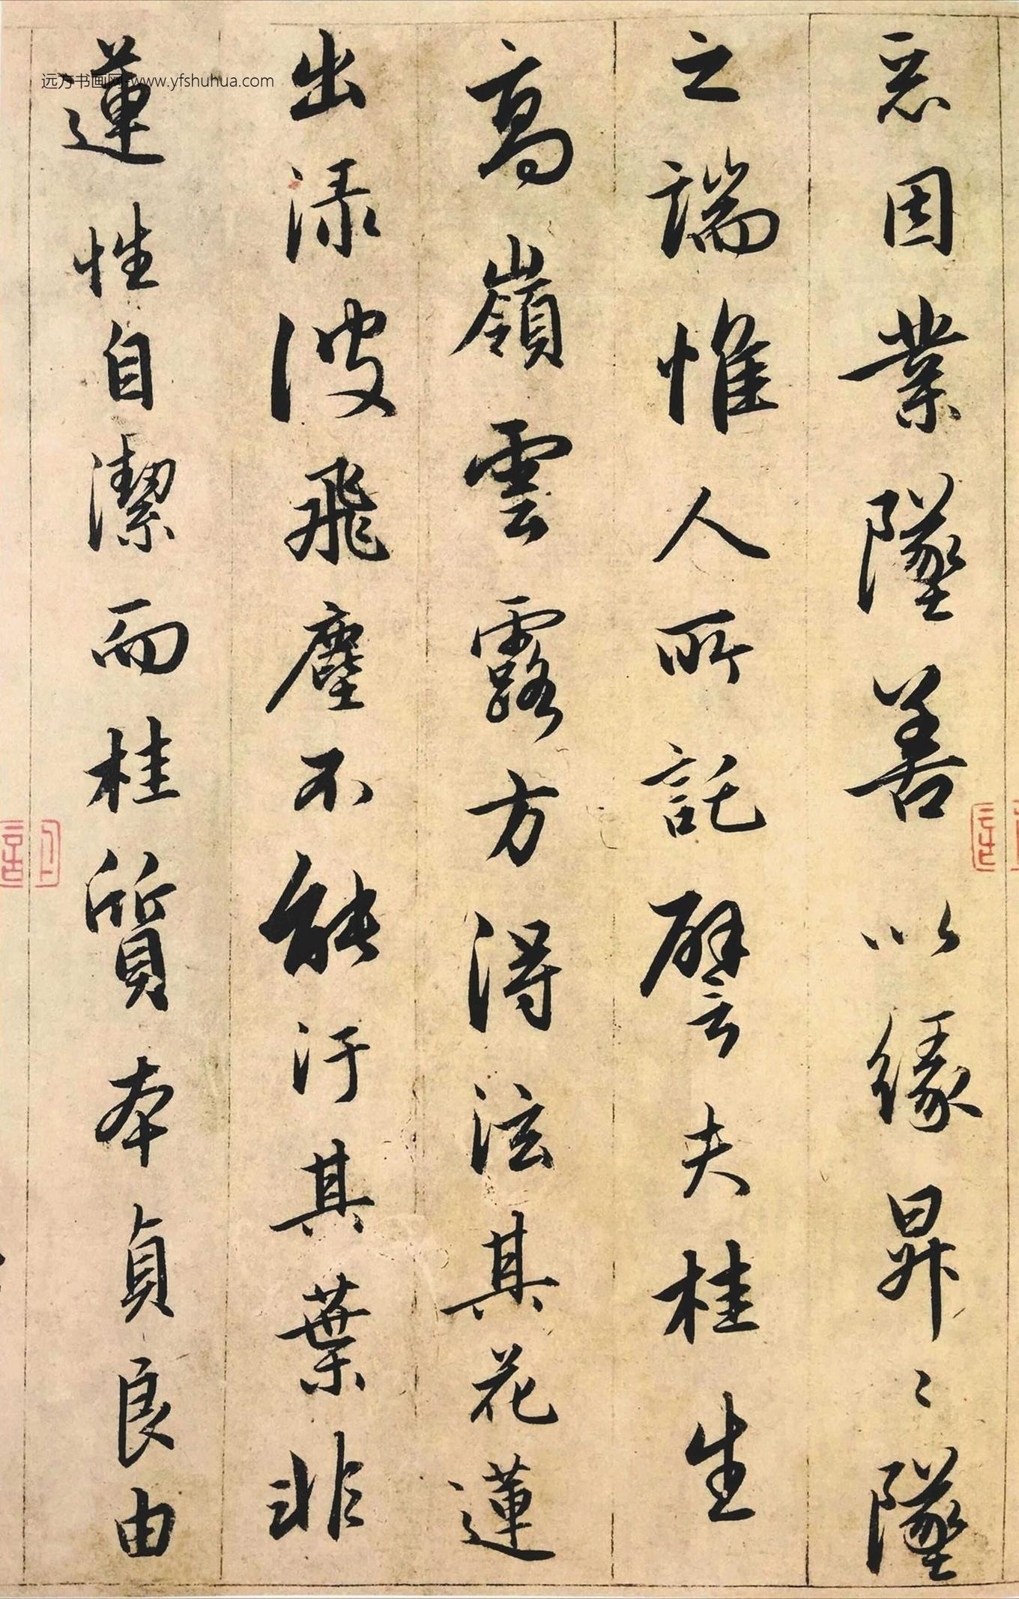 惡因業墜善以緣昇〻墜
之端惟人所託譬夫桂生
高嶺雲露方得泫其花蓮
出淥波飛塵不能汙其葉非
蓮性自潔而桂質本貞良由
远方书画网 www.yfshuhua.com